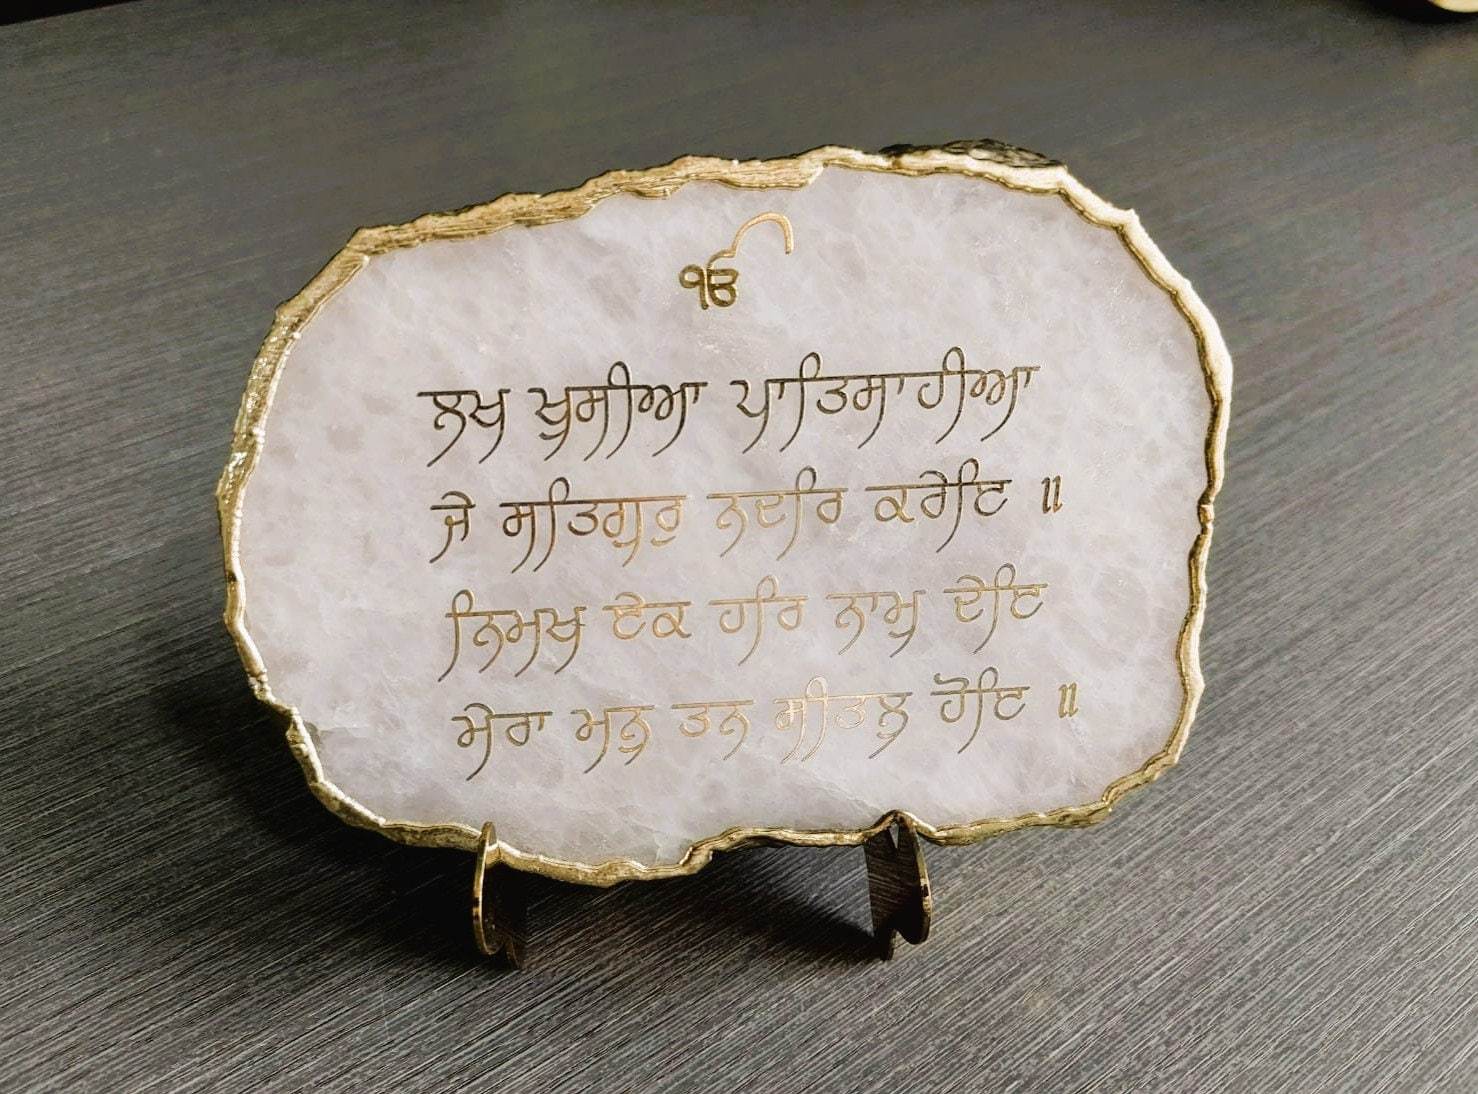 ੴ
ਲਖ ਖੁਸੀਆ ਪਾਤਿਸਾਹੀਆ
ਜੇ ਸਤਿਗੁਰੁ ਨਦਰਿ ਕਰੇਇ ॥
ਨਿਮਖ ਏਕ ਹਰਿ ਨਾਮੁ ਦੇਇ
ਮੇਰਾ ਮਨੁ ਤਨ ਸੀਤਲੁ ਹੋਇ ॥